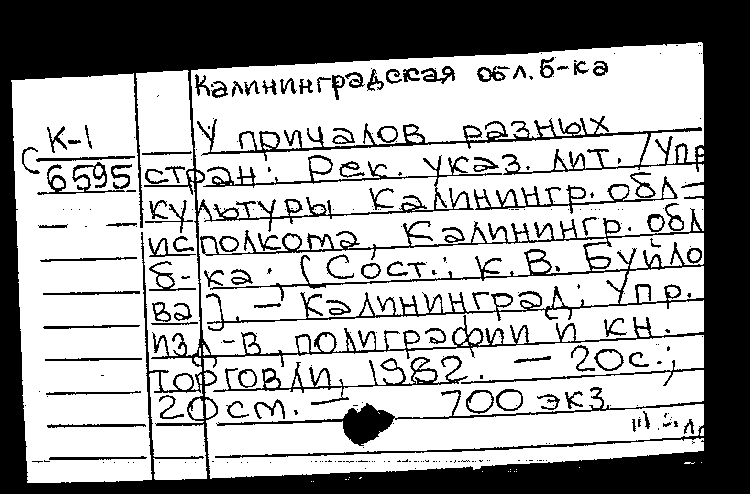 Калининградская обл. б-ка
К-1
6595
У причалов разных
стран: Рек. указ. лит. / Упр
культуры Калинингр. обл=
исполкома, Калинингр. обл
б-ка; [Сост.: К. В. Буйло
ва]. — Калининград: Упр.
изд-в, полиграфии и кн.
торговли, 1982. — 20 с.;
20 см. — 700 экз.